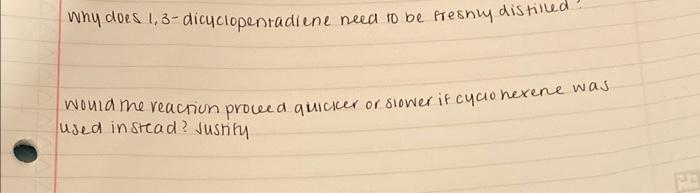 Why does 1,3-dicyclopentadiene need to be freshly distilled?
Would the reaction proceed quicker or slower if cyclohexene was
used instead? Justify